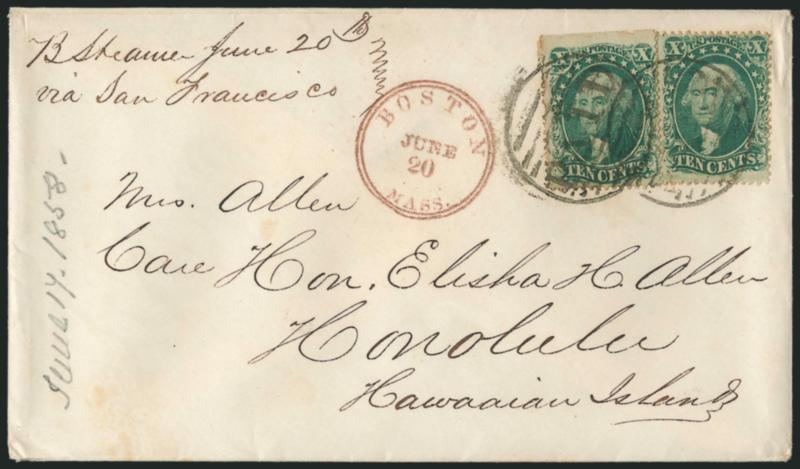 B Steamer June 20th
via San Francisco
BOSTON
JUNE
20
MASS.
X U.S. POSTAGE X
TEN CENTS
X U.S. POSTAGE X
TEN CENTS
PAID
Mrs. Allen
Care Hon. Elisha H. Allen
Honolulu
Hawaaian Islands
June 17. 1858.